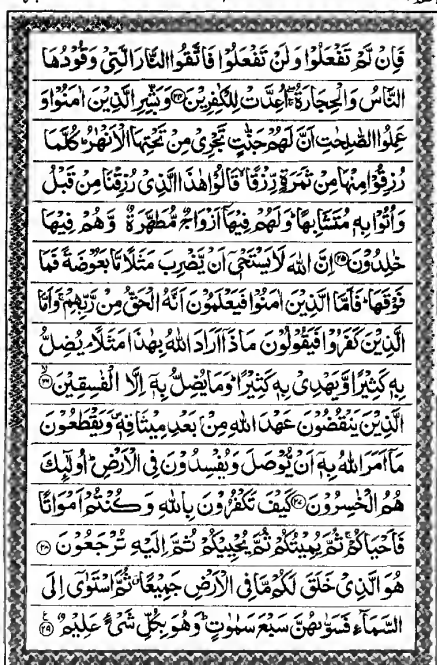 فَاِنۡ لَّمۡ تَفۡعَلُوۡا وَلَنۡ تَفۡعَلُوۡا فَاتَّقُوا النَّارَ الَّتِىۡ وَقُوۡدُهَا
النَّاسُ وَالۡحِجَارَةُ ۖۚ اُعِدَّتۡ لِلۡكٰفِرِيۡنَ ﴿۲۴﴾ وَبَشِّرِ الَّذِيۡنَ اٰمَنُوۡا وَ
عَمِلُوا الصّٰلِحٰتِ اَنَّ لَهُمۡ جَنّٰتٍ تَجۡرِىۡ مِنۡ تَحۡتِهَا الۡاَنۡهٰرُ ؕ كُلَّمَا
رُزِقُوۡا مِنۡهَا مِنۡ ثَمَرَةٍ رِّزۡقًا ۙ قَالُوۡا هٰذَا الَّذِىۡ رُزِقۡنَا مِنۡ قَبۡلُ
وَاُتُوۡا بِهٖ مُتَشَابِهًا ؕ وَلَهُمۡ فِيۡهَآ اَزۡوَاجٌ مُّطَهَّرَةٌ ۙ وَّهُمۡ فِيۡهَا
خٰلِدُوۡنَ ﴿۲۵﴾ اِنَّ اللّٰهَ لَا يَسۡتَحۡىٖۤ اَنۡ يَّضۡرِبَ مَثَلًا مَّا بَعُوۡضَةً فَمَا
فَوۡقَهَا ؕ فَاَمَّا الَّذِيۡنَ اٰمَنُوۡا فَيَعۡلَمُوۡنَ اَنَّهُ الۡحَقُّ مِنۡ رَّبِّهِمۡ ۚ وَاَمَّا
الَّذِيۡنَ كَفَرُوۡا فَيَقُوۡلُوۡنَ مَاذَآ اَرَادَ اللّٰهُ بِهٰذَا مَثَلًا ۘ يُضِلُّ
بِهٖ كَثِيۡرًا وَّيَهۡدِىۡ بِهٖ كَثِيۡرًا ؕ وَمَا يُضِلُّ بِهٖۤ اِلَّا الۡفٰسِقِيۡنَ ﴿۲۶﴾ ۙ
الَّذِيۡنَ يَنۡقُضُوۡنَ عَهۡدَ اللّٰهِ مِنۡۢ بَعۡدِ مِيۡثَاقِهٖ ۪ وَيَقۡطَعُوۡنَ
مَآ اَمَرَ اللّٰهُ بِهٖۤ اَنۡ يُّوۡصَلَ وَيُفۡسِدُوۡنَ فِى الۡاَرۡضِ ؕ اُولٰٓٮِٕكَ
هُمُ الۡخٰسِرُوۡنَ ﴿۲۷﴾ كَيۡفَ تَكۡفُرُوۡنَ بِاللّٰهِ وَڪُنۡتُمۡ اَمۡوَاتًا
فَاَحۡيَاکُمۡ ۚ ثُمَّ يُمِيۡتُكُمۡ ثُمَّ يُحۡيِيۡكُمۡ ثُمَّ اِلَيۡهِ تُرۡجَعُوۡنَ ﴿۲۸﴾
هُوَ الَّذِىۡ خَلَقَ لَكُمۡ مَّا فِى الۡاَرۡضِ جَمِيۡعًا ۙ ثُمَّ اسۡتَوٰٓى اِلَى
السَّمَآءِ فَسَوّٰٮهُنَّ سَبۡعَ سَمٰوٰتٍ ؕ وَهُوَ بِكُلِّ شَىۡءٍ عَلِيۡمٌ ﴿۲۹﴾